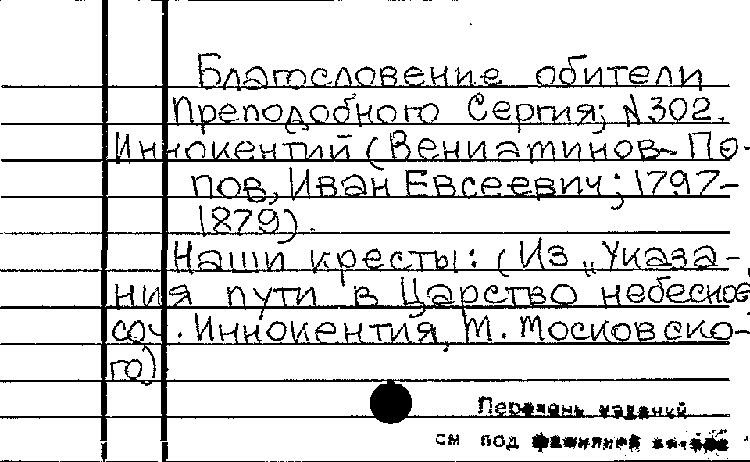 Благословение обители
Преподобного Сергия; №302.
Иннокентий (Вениаминов-По-
пов, Иван Евсеевич; 1797-
1879).
Наши кресты: (Из „Указа-
ния пути в Царство небесное
соч. Иннокентия, М. Московско-
го)
Перечень изданий
см под фамилией